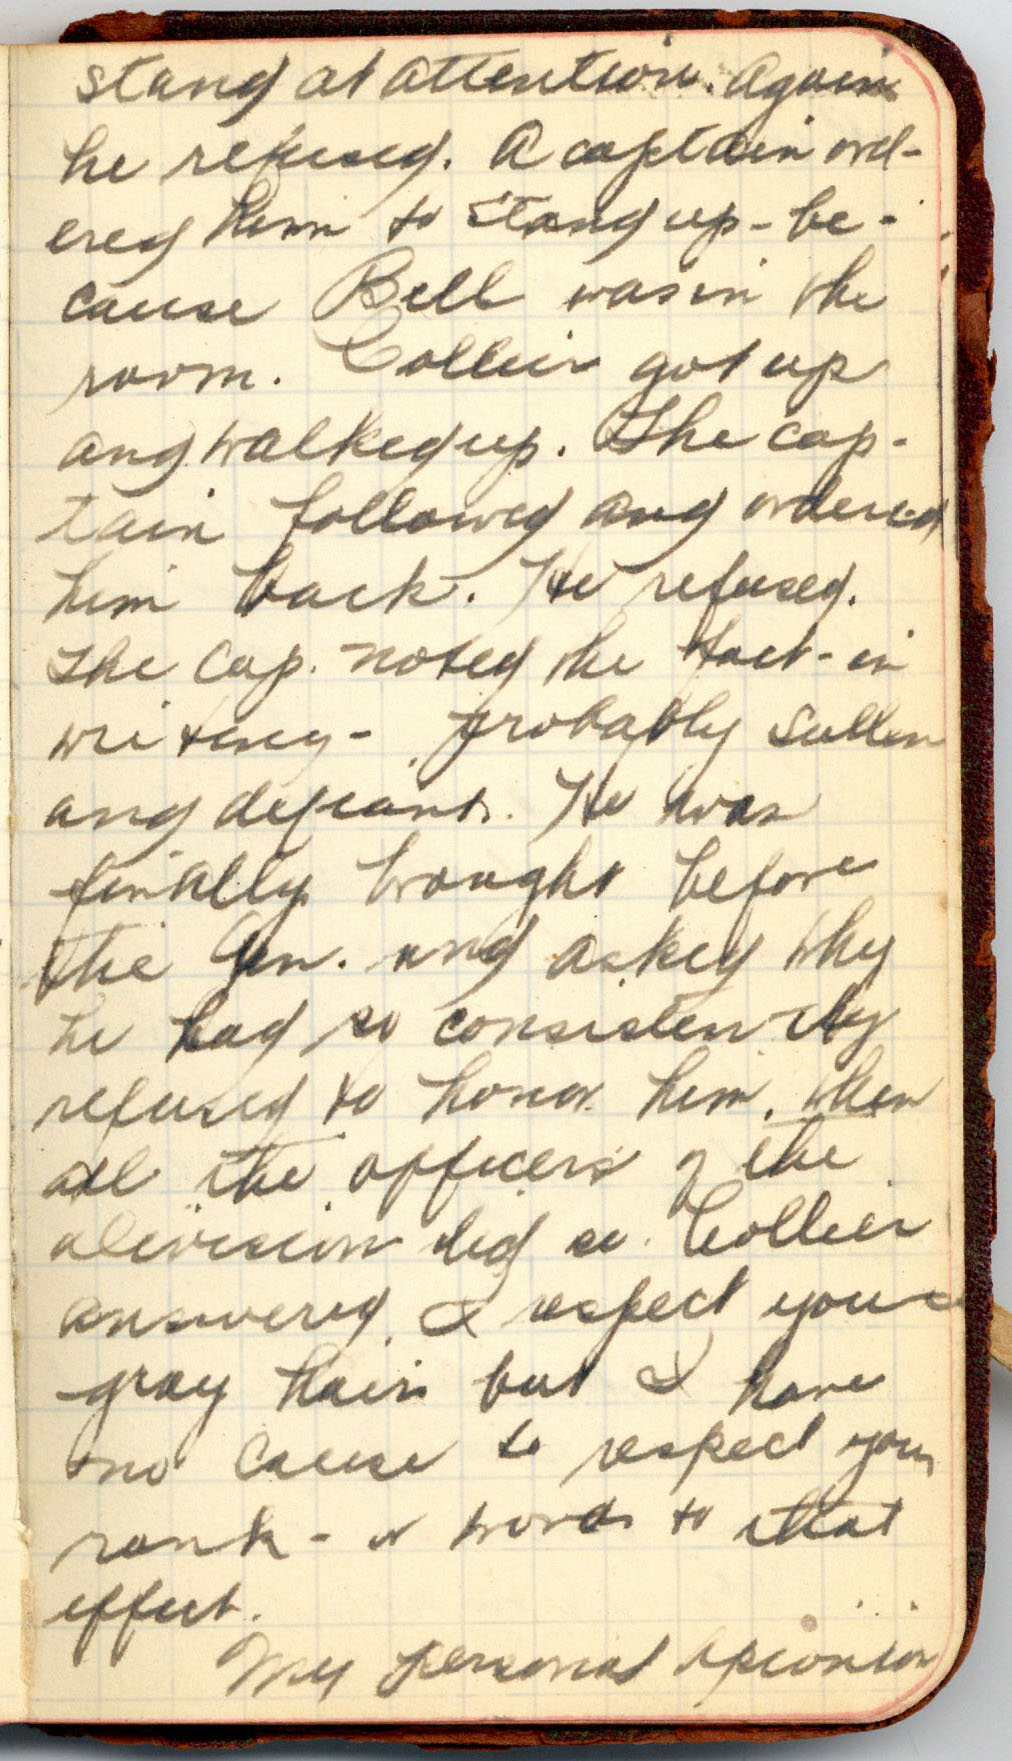 stand at attention. Again
he refused. A captain ord-
ered him to stand up - be-
cause Bell was in the
room. Collier got up
and walked up. The cap-
tain followed and ordered
him back. He refused.
The Cap. noted the fact - in
writing - probably sullen
and defiant. He was
finally brought before
the Gen. and asked why
he had so consistently
refused to honor him, when
all the officers of the
division did so. Collier
answered, I respect your
gray hair but I have
no cause to respect your
rank - or words to that
effect.
My personal opionion